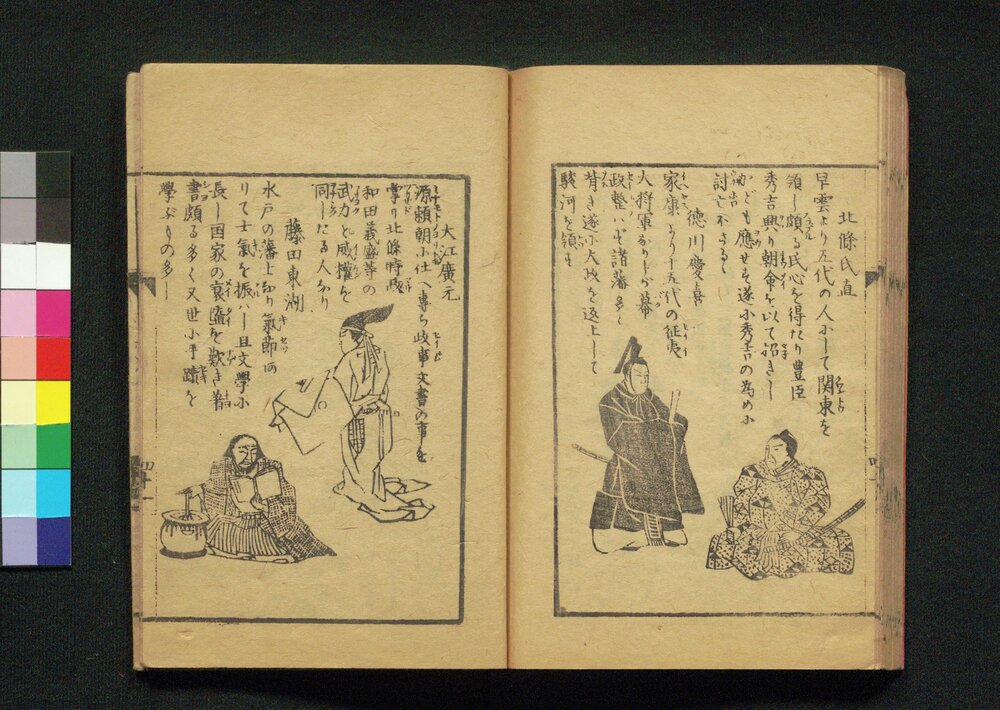 北條氏直
早雲より五代の人にして関東を
領し頗る民心を得たり豊臣
秀吉興り朝命を以て招きし
かども應せず遂に秀吉の為めに
討亡さる
徳川慶喜
家康より十五代の征夷
大将軍なりしが幕
政整はず諸藩多く
背き遂に大政を返上して
駿河を領す
大江廣元
源頼朝に仕へ専ら政事文書の事を
掌り北條時政
和田義盛等の
武力と威權を
同したる人なり
藤田東湖
水戸の藩士なり氣節あ
りて士氣を振はし且文學に
長し国家の衰
を歎き著
書頗る多く又世に手蹟を
學ぶもの多し
四十一